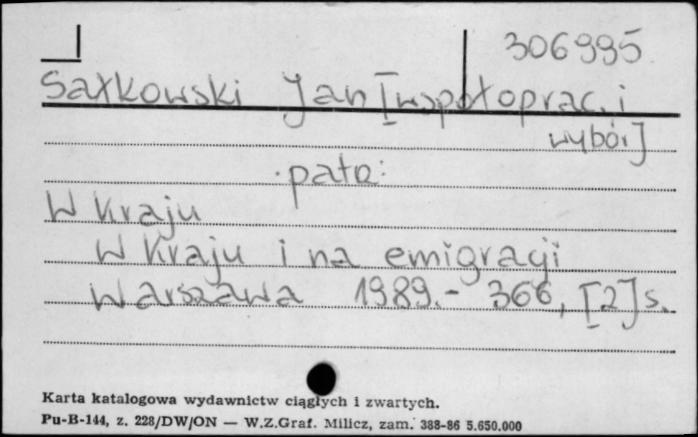 306995
Sałkowski Jan [współoprac. i
wybór]
patrz:
W Kraju
W Kraju i na emigracji
Warszawa 1989.- 366, [2] s.
Karta katalogowa wydawnictw ciągłych i zwartych.
Pu-B-144, z. 228/DW/ON — W.Z.Graf. Milicz, zam. 388-86 5.650.000